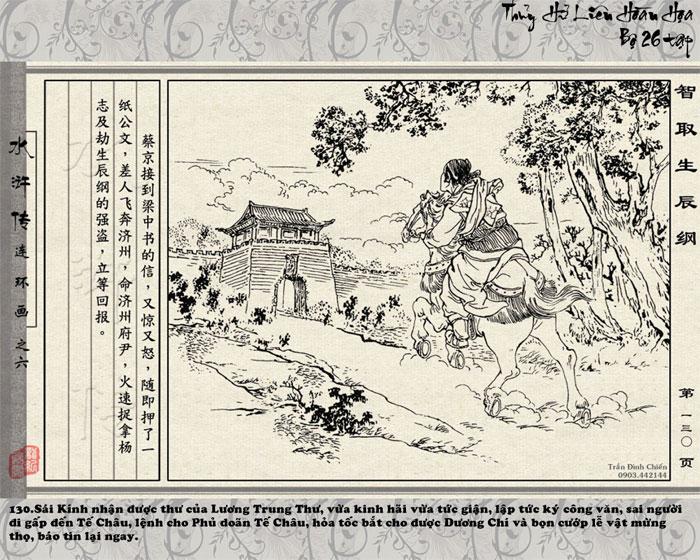 Thủy Hử Liên Hoàn Họa
Bộ 26 tập
智取生辰纲
第一三〇页
蔡京接到梁中书的信，又惊又怒，随即押了一
纸公文，差人飞奔济州，命济州府尹，火速捉拿杨
志及劫生辰纲的强盗，立等回报。
水浒传连环画之六
Trần Đình Chiến
0903.442144
130.Sái Kinh nhận được thư của Lương Trung Thư, vừa kinh hãi vừa tức giận, lập tức ký công văn, sai người
đi gấp đến Tế Châu, lệnh cho Phủ doãn Tế Châu, hỏa tốc bắt cho được Dương Chí và bọn cướp lễ vật mừng
thọ, báo tin lại ngay.